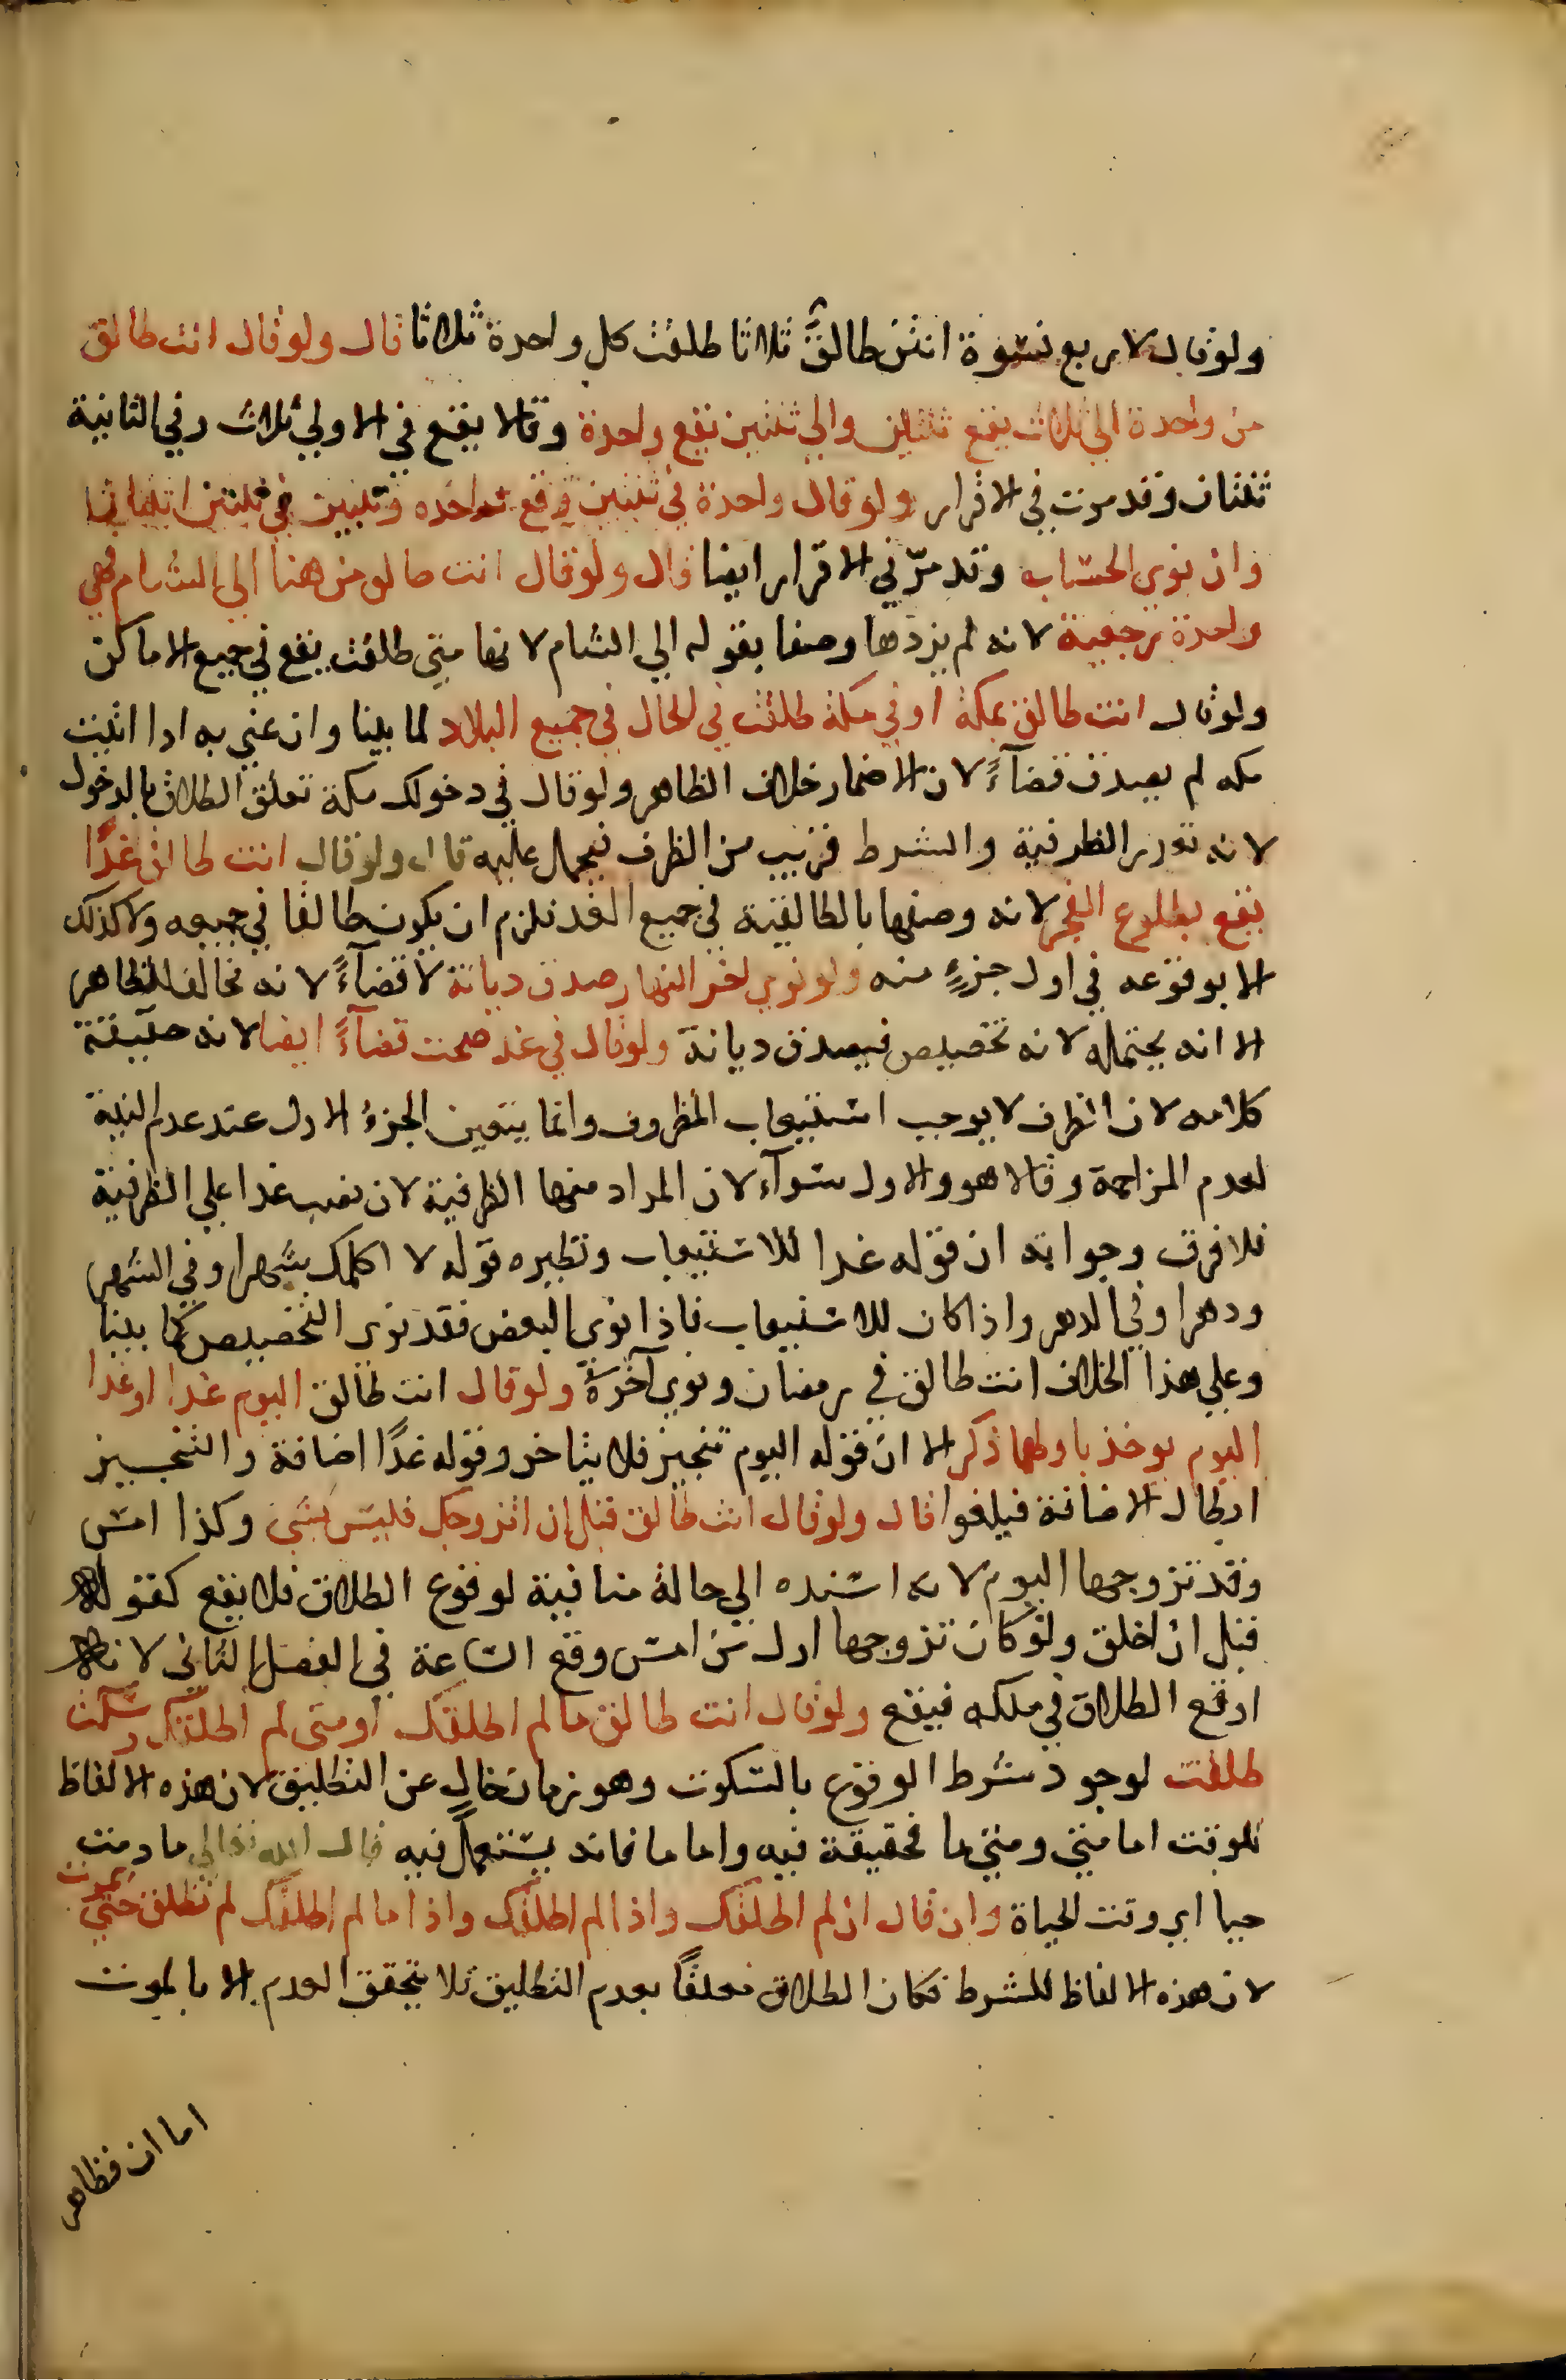 ولو قال لاربع نسوة انتن طالق ثلاثا طلقت كل واحدة ثلاثا قال ولو قال انت طالق
من واحدة الي ثلاث يقع ثنتان والي ثنتين تقع واحدة وقالا يقع في الاولي ثلاث وفي الثانية
ثنتان وقد مرت في الاقرار ولو قال واحدة في ثنتين وقع واحدة وثنتين في ثنتين اثنتان
وان نوي الحساب وقد مرّ في الاقرار ايضا قال ولو قال انت طالق من هنا الي الشام فهي
واحدة رجعية لانه لم يزدها وصفا بقوله الي الشام لانها متي طلقت يقع في جميع الاماكن
ولو قال انت طالق بمكة او في مكة طلقت في الحال في جميع البلاد لما بينا وان عني به اذا اتيت
مكه لم يصدق قضآءً لان الاضمار خلاف الظاهر ولو قال في دخولك مكة تعلق الطلاق بالدخول
لانه تعذر الظرفية والشرط قريب من الظرف فيحمل عليه قال ولو قال انت طالق غدًا
يقع بطلوع الفجر لانه وصفها بالطالقية في جميع الغد فلزم ان يكون طالقا في جميعه ولا كذلك
الا بوقوعه في اول جزءٍ منه ولو نوي اخر النهار صدق ديانة لا قضآءً لانه مخالف للظاهر
الا انه يحتمله لانه تخصيص فيصدق ديانة ولو قال في غد صحت قضآءً ايضا لانه حقيقة
كلامه لان الظرف لا يوجب استيعاب المظروف وانما يتعين الجزءُ الاول عند عدم النية
لعدم المزاحمة وقالا هو والاول سوآء لان المراد منهما الظرفية لان نصب غدا علي الظرفية
فلا فرق وجوابه ان قوله غدا للاستيعاب ونظيره قوله لا اكلمك شهرا وفي الشهر
ودهرا وفي الدهر واذا كان للاستيعاب فاذا نوي البعض فقد نوي التخصيص كما بينا
وعلي هذا الخلاف انت طالق في رمضان ونوي آخرهُ ولو قال انت طالق اليوم غدا او غدا
اليوم يوخذ باولهما ذكر الا ان قوله اليوم تنجيز فلا يتاخر وقوله غدًا اضافة والتنجيز
ابطال الاضافة فيلغوا قال ولو قال انت طالق قبل ان اتزوجك فليس بشي وكذا امس
وقد تزوجها اليوم لانه اسنده الي حالة منافية لوقوع الطلاق فلا يقع كقوله
قبل ان اخلق ولو كان تزوجها اول من امس وقع الساعة في الفصل الثاني لانه
اوقع الطلاق في ملكه فيقع ولو قال انت طالق ما لم اطلقك او متي لم اطلقك وسكت
طلقت لوجود شرط الوقوع بالسكوت وهو زمان خالٍ عن التطليق لان هذه الالفاظ
للوقت اما متي ومتي ما فحقيقة فيه واما ما فانه يستعمل فيه قال الله تعالي ما دمت
حيا اي وقت الحياة وان قال ان لم اطلقك واذا لم اطلقك واذا ما لم اطلقك لم تطلق حتي يموت
لان هذه الالفاظ للشرط فكان الطلاق معلقًا بعدم التطليق فلا يتحقق العدم الا بالموت
اما ان فظاهر